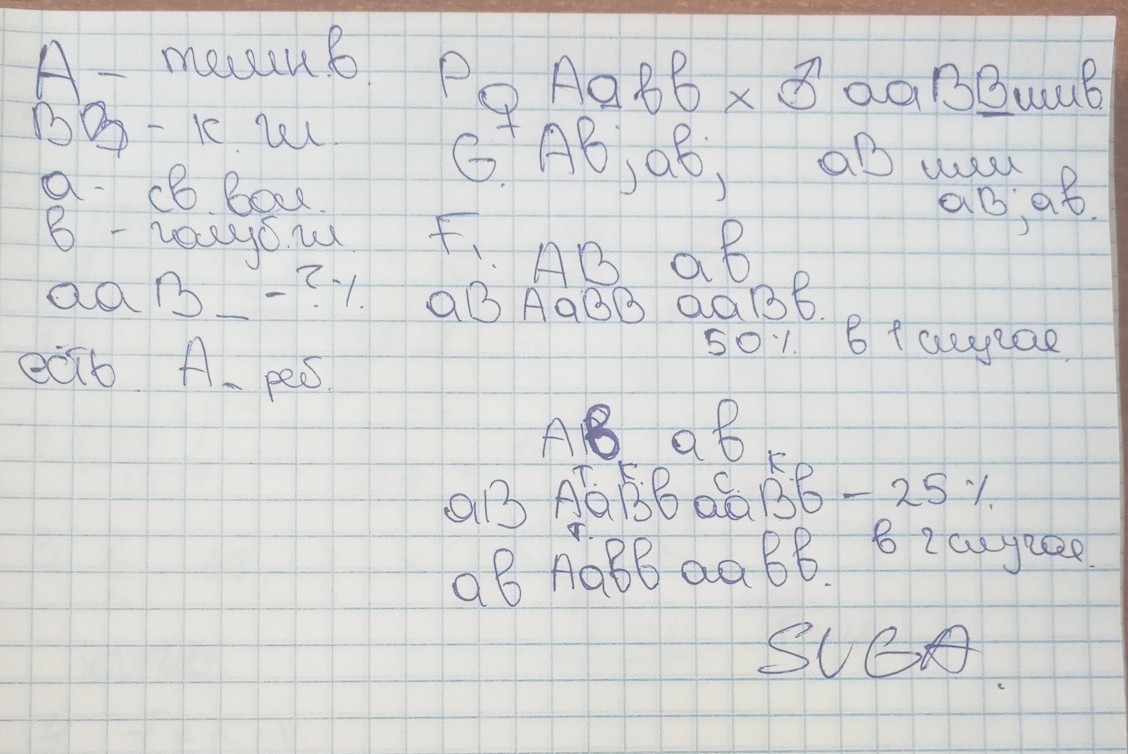 А - темн.в.
ВВ - к. гл.
а - св. вол.
в - голуб. гл.
ааВ_ - ?%
есть А_ реб.
Р ♀ Аавв × ♂ ааВВ или в
G. Ав; ав; аВ или
аВ; ав.
F₁.
АВ ав
аВ АаВВ ааВв.
50% в 1 случае.
Ав ав
Т. К. С. К.
аВ АаВв ааВв - 25%
в 2 случае.
т.
ав Аавв аавв.
SUGA.